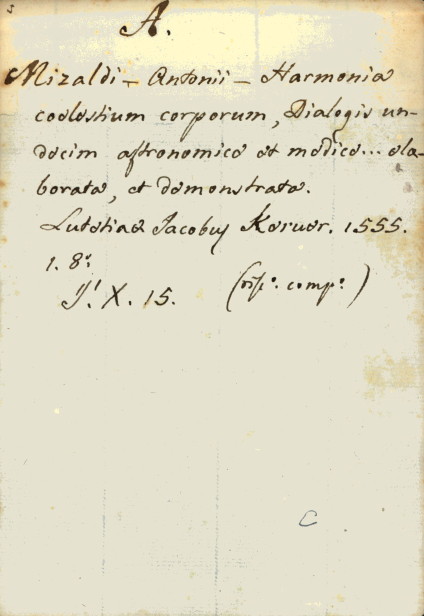 A.
Mizaldi - Antonii - Harmonia
coelestium corporum, Dialogis un-
decim astronomice et medice... ela-
borata, et demonstrata.
Lutetiae Jacobus Kerver. 1555.
1. 8.º
X. 15. compº.)
C